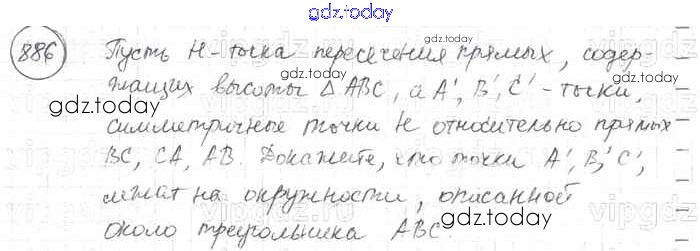 gdz.today
886 Пусть H - точка пересечения прямых, содер-
жащих высоты △ ABC, а A', B', C' - точки,
симметричные точки H относительно прямых
BC, CA, AB. Докажите, что точки A', B', C',
лежат на окружности, описанной
около треугольника ABC.
gdz.today
gdz.today
gdz.today
gdz.today
gdz.today
gdz.today